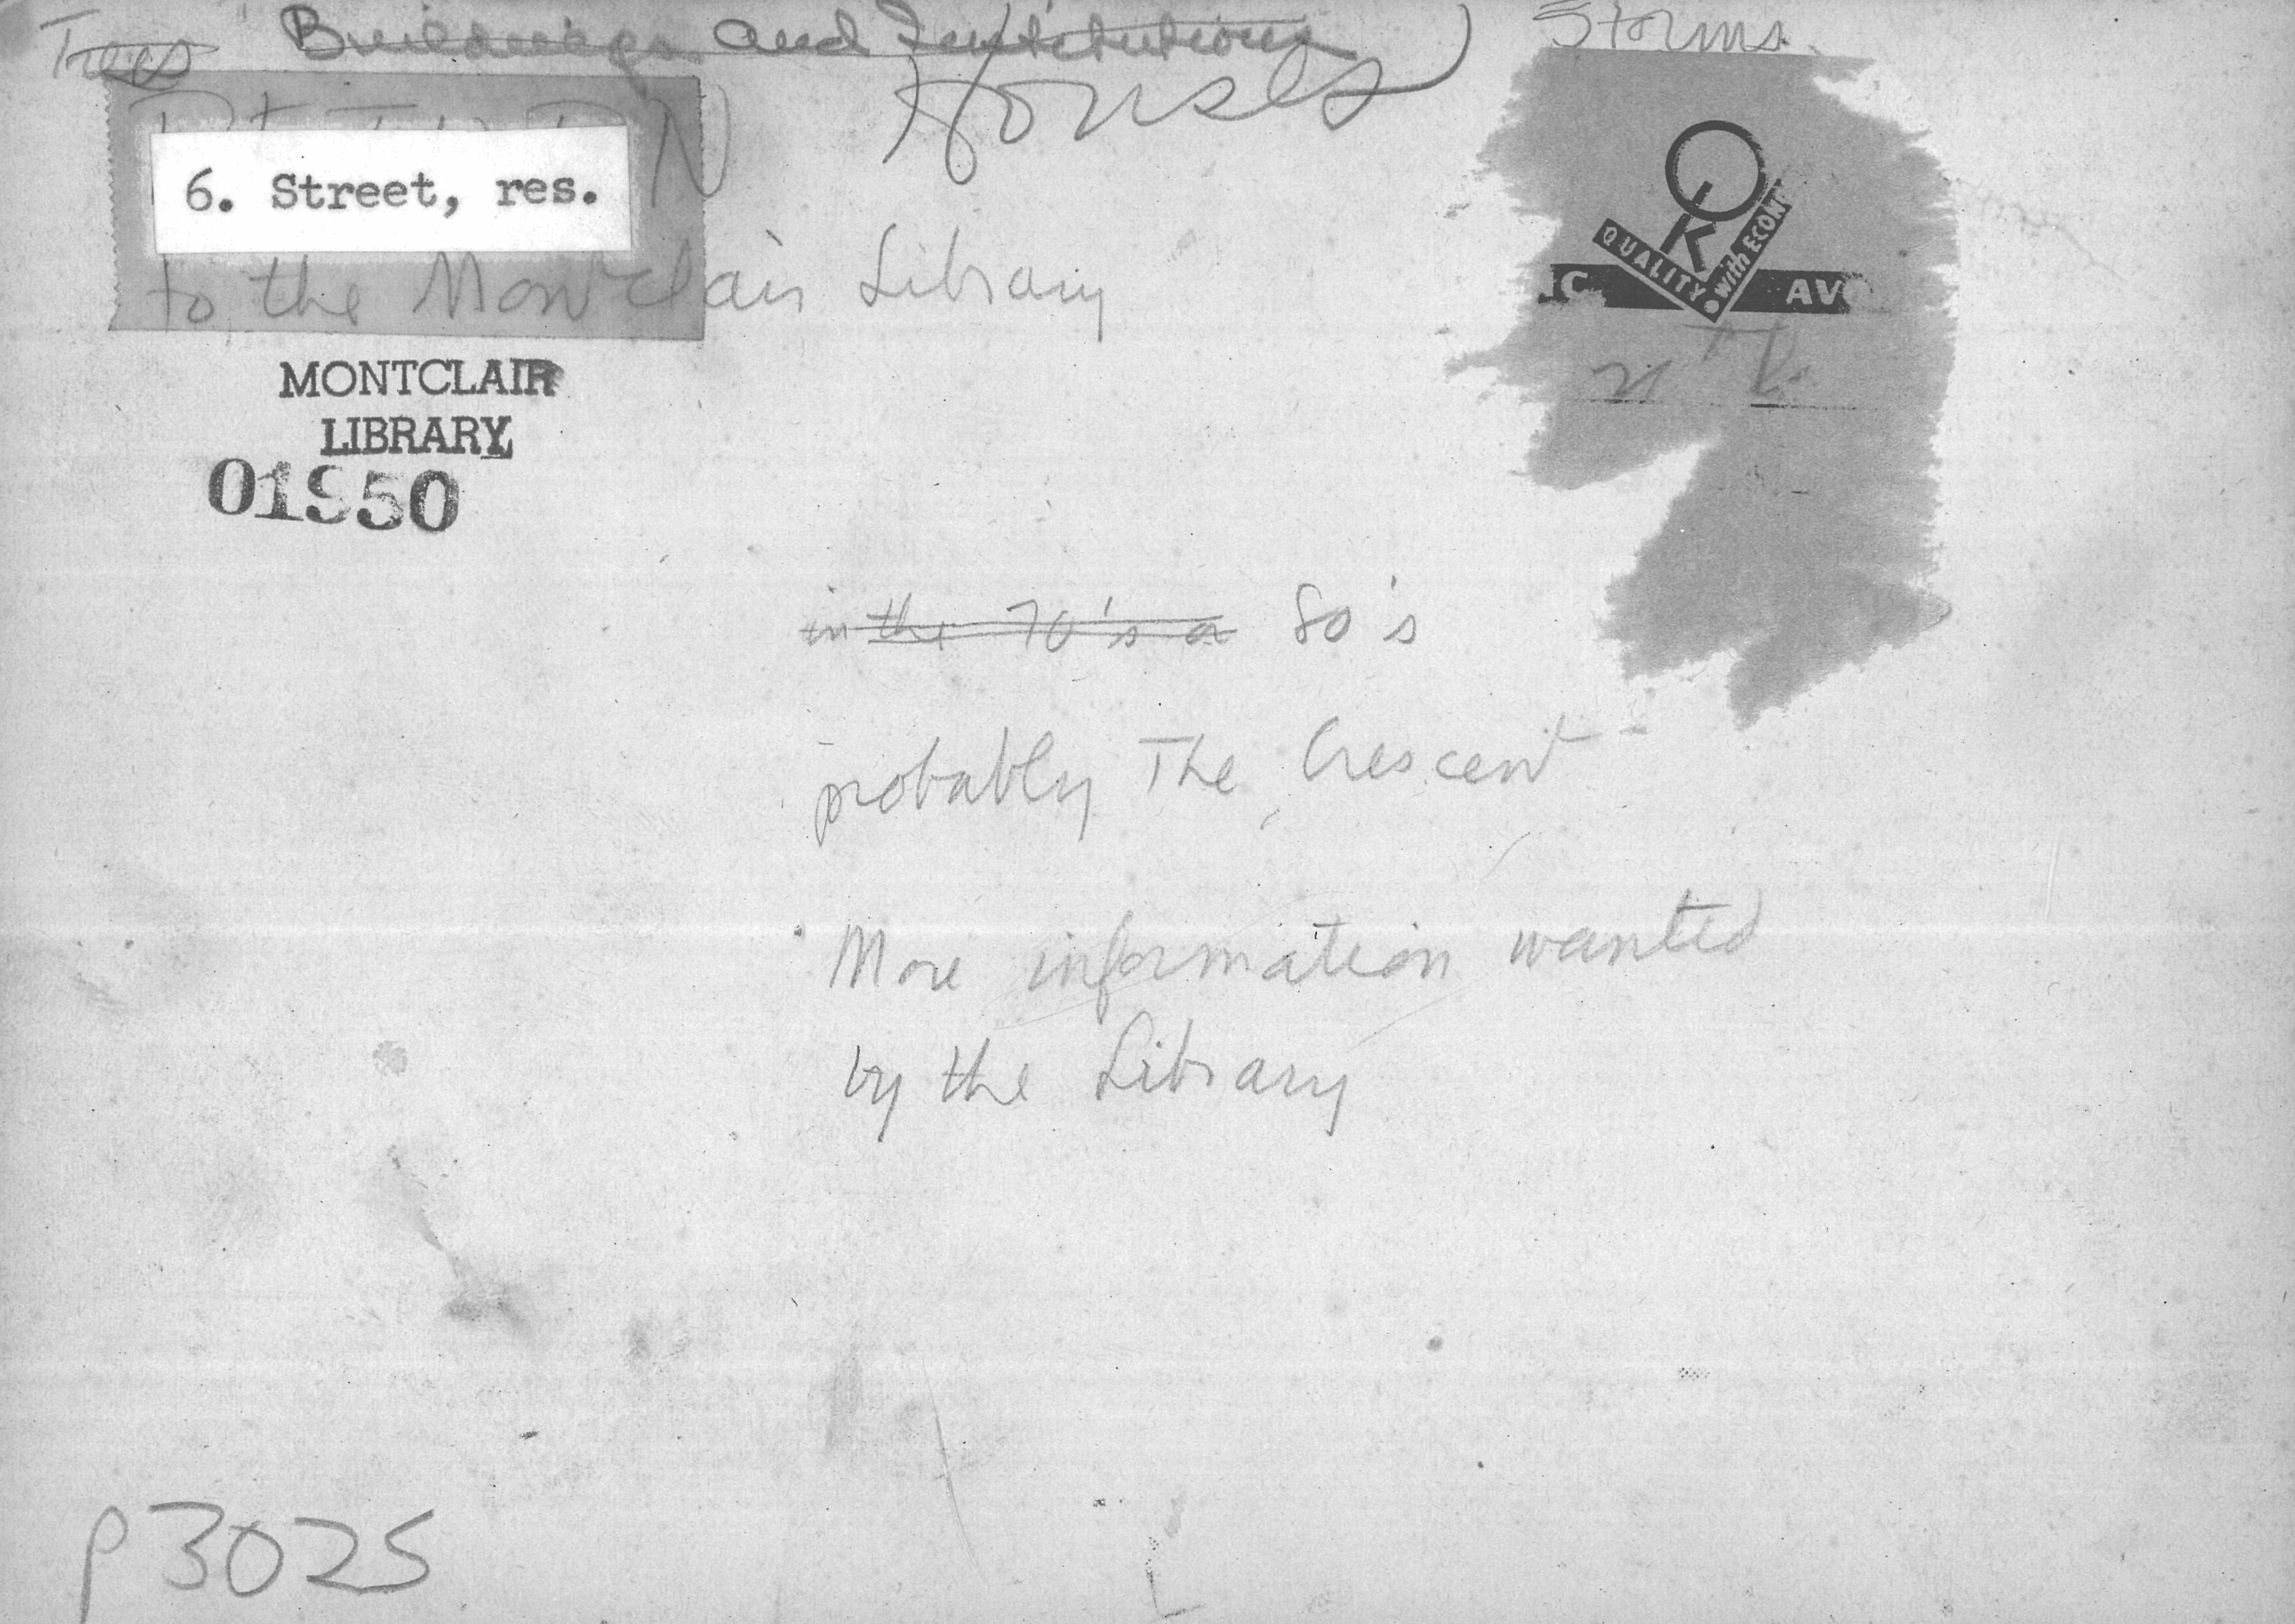 Trees Buildings and Institutions Storms
Houses
6. Street, res.
to the Montclair Library
MONTCLAIR
LIBRARY
01950
OK
QUALITY with ECON
C AV
in the 70's or 80's
probably The Crescent
More information wanted
by the Library
P3025